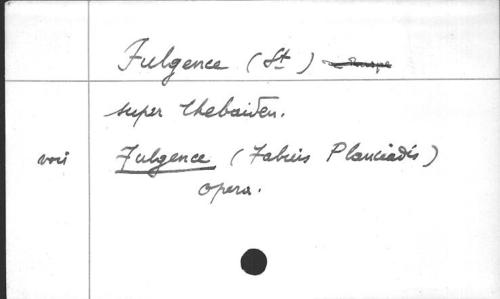 Fulgence (St)
super Thebaiden.
voir Fulgence (Fabius Planciadis)
opera.